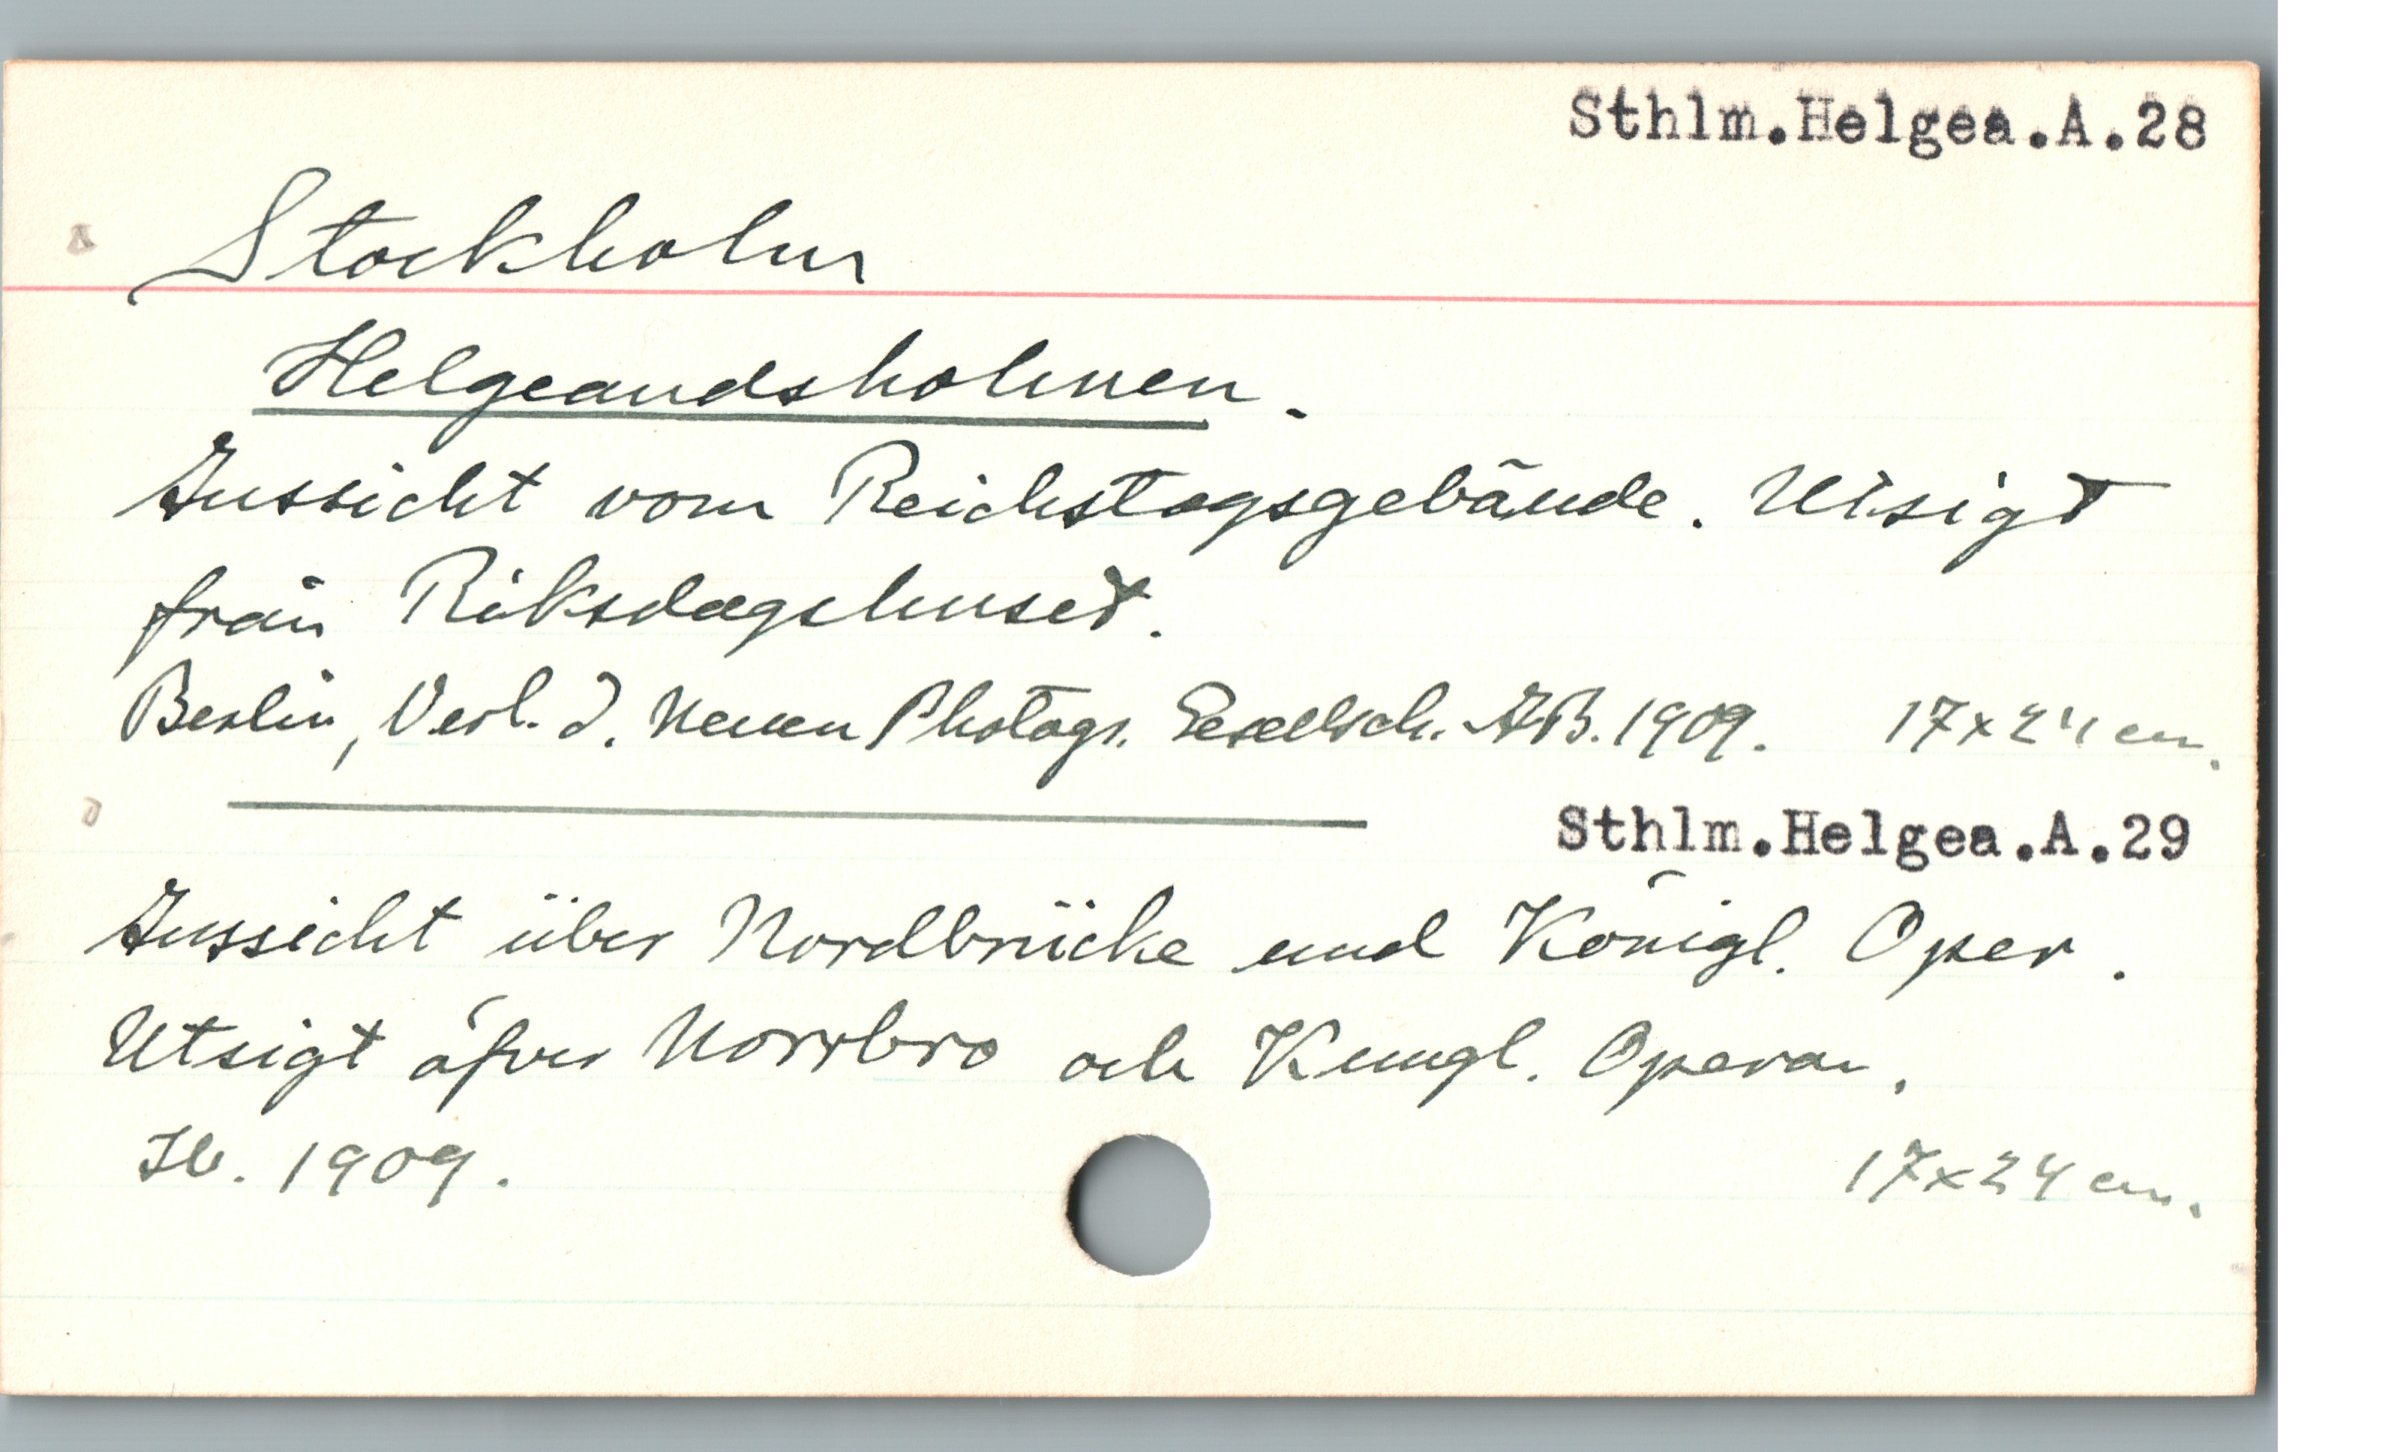 Sthlm.Helgea.A.28
Stockholm
Helgeandsholmen.
Aussicht vom Reichstagsgebäude. Utsigt
från Riksdagshuset.
Berlin, Verl. d. Neuen Photogr. Gesellsch. AB. 1909. 17x24 cm.
Sthlm.Helgea.A.29
Aussicht über Nordbrücke und Königl. Oper.
Utsigt öfver Norrbro och Kungl. Operan.
Ib. 1909. 17x24 cm.